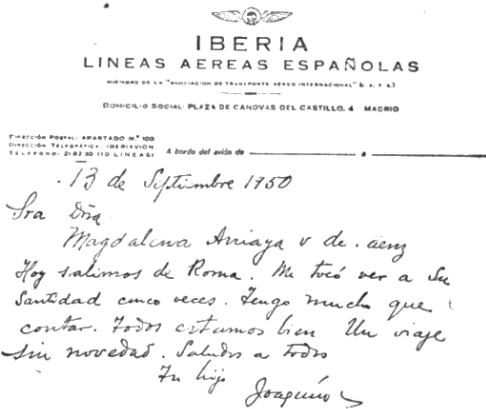 IBERIA
LINEAS AEREAS ESPAÑOLAS
MIEMBRO DE LA "ASOCIACION DE TRANSPORTE AEREO INTERNACIONAL" (I. A. T. A.)
DOMICILIO SOCIAL: PLAZA DE CANOVAS DEL CASTILLO, 4 MADRID
DIRECCIÓN POSTAL: APARTADO N.º 100
DIRECCIÓN TELEGRÁFICA: IBERIAVIÓN
TELÉFONO: (10 LINEAS)
A bordo del avión de a
13 de Septiembre 1950
Sra Dña
Magdalena Arriaga v de.
Hoy salimos de Roma. Me tocó ver a Su
Santidad cinco veces. Tengo mucho que
contar. Todos estamos bien Un viaje
sin novedad. Saludos a todos
Tu hijo
Joaquín